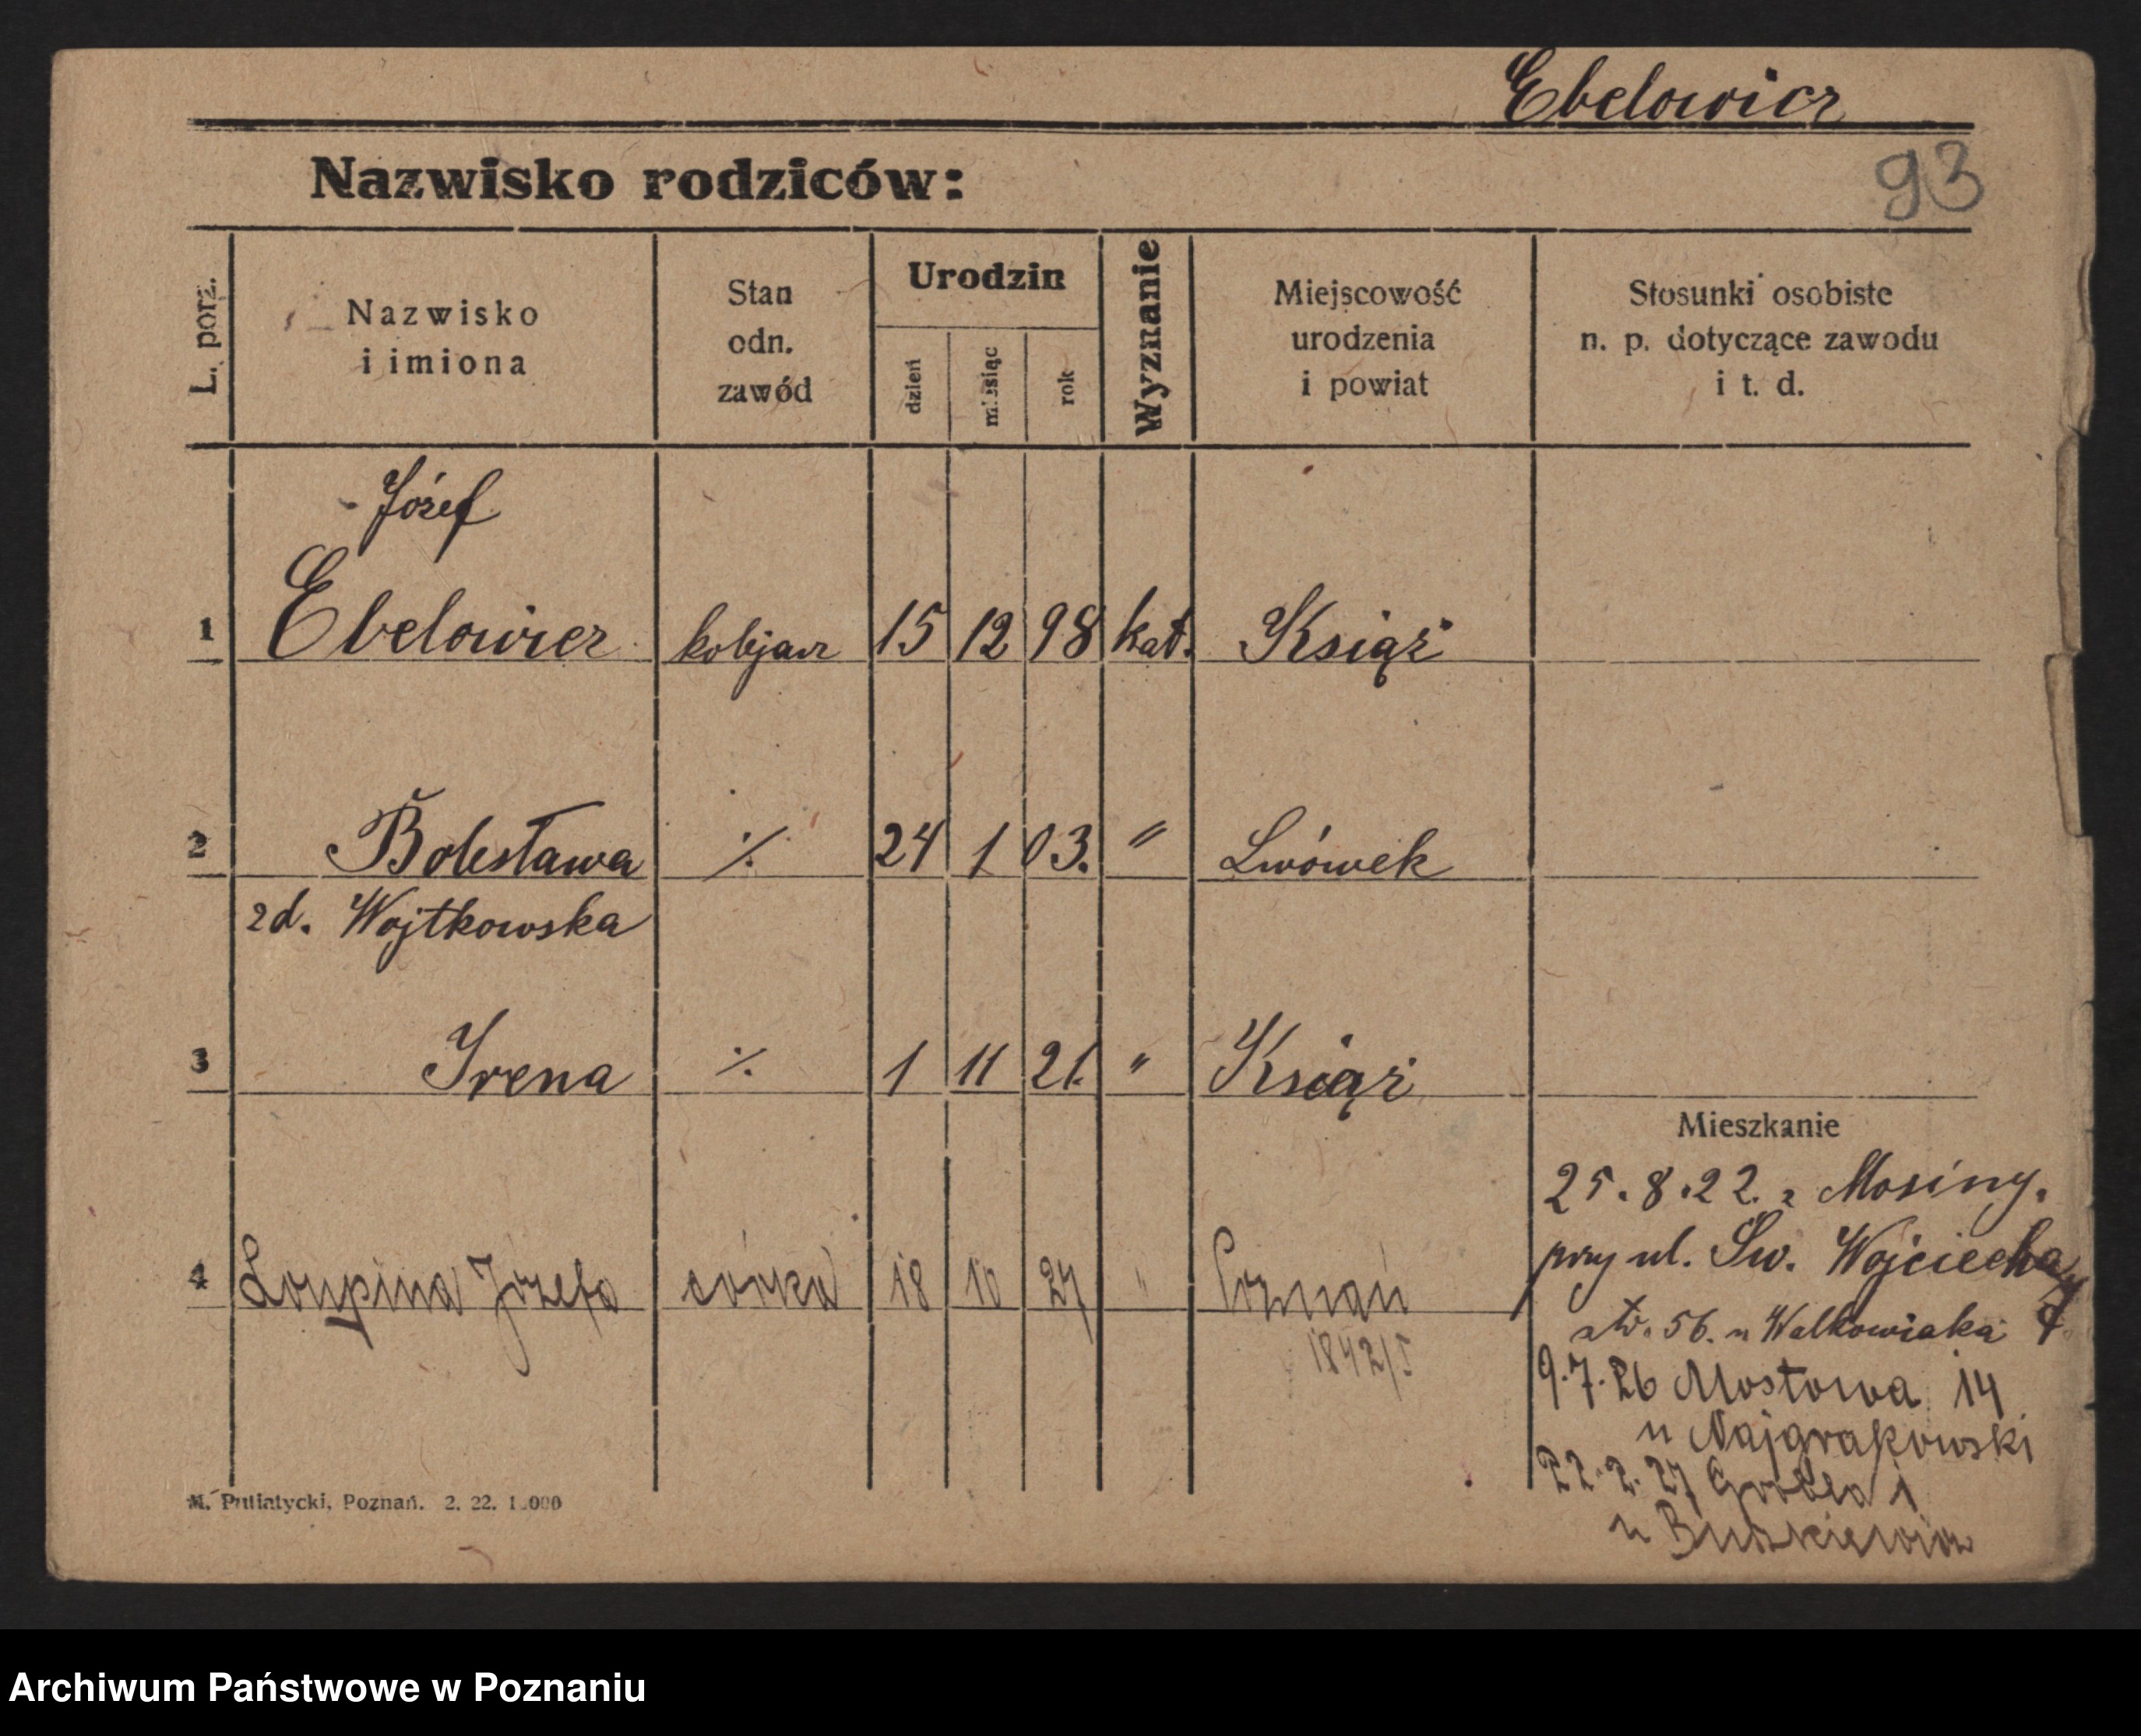 Ebelowicz
93
Nazwisko rodziców:
L. porz.
Nazwisko
i imiona
Stan
odn.
zawód
Urodzin
dzień
miesiąc
rok
Wyznanie
Miejscowość
urodzenia
i powiat
Stosunki osobiste
n. p. dotyczące zawodu
i t. d.
Józef
1 Ebelowicz kolejarz 15 12 98 kat. Książ
2 Bolesława ./. 24 1 03. " Lwówek
zd. Wojtkowska
3 Irena ./. 1 11 21. " Książ
Mieszkanie
25.8.22. z Mosiny.
przy ul. Św. Wojciecha
4 Józefa córka 18 10 24 " Poznań
str. 56. u Walkowiaka
1842/I
9.7.26 Mostowa 14
u Najgrakowski
22.2.27 Grobla 1
u
M. Putiatycki, Poznań. 2. 22. 1.000
Archiwum Państwowe w Poznaniu